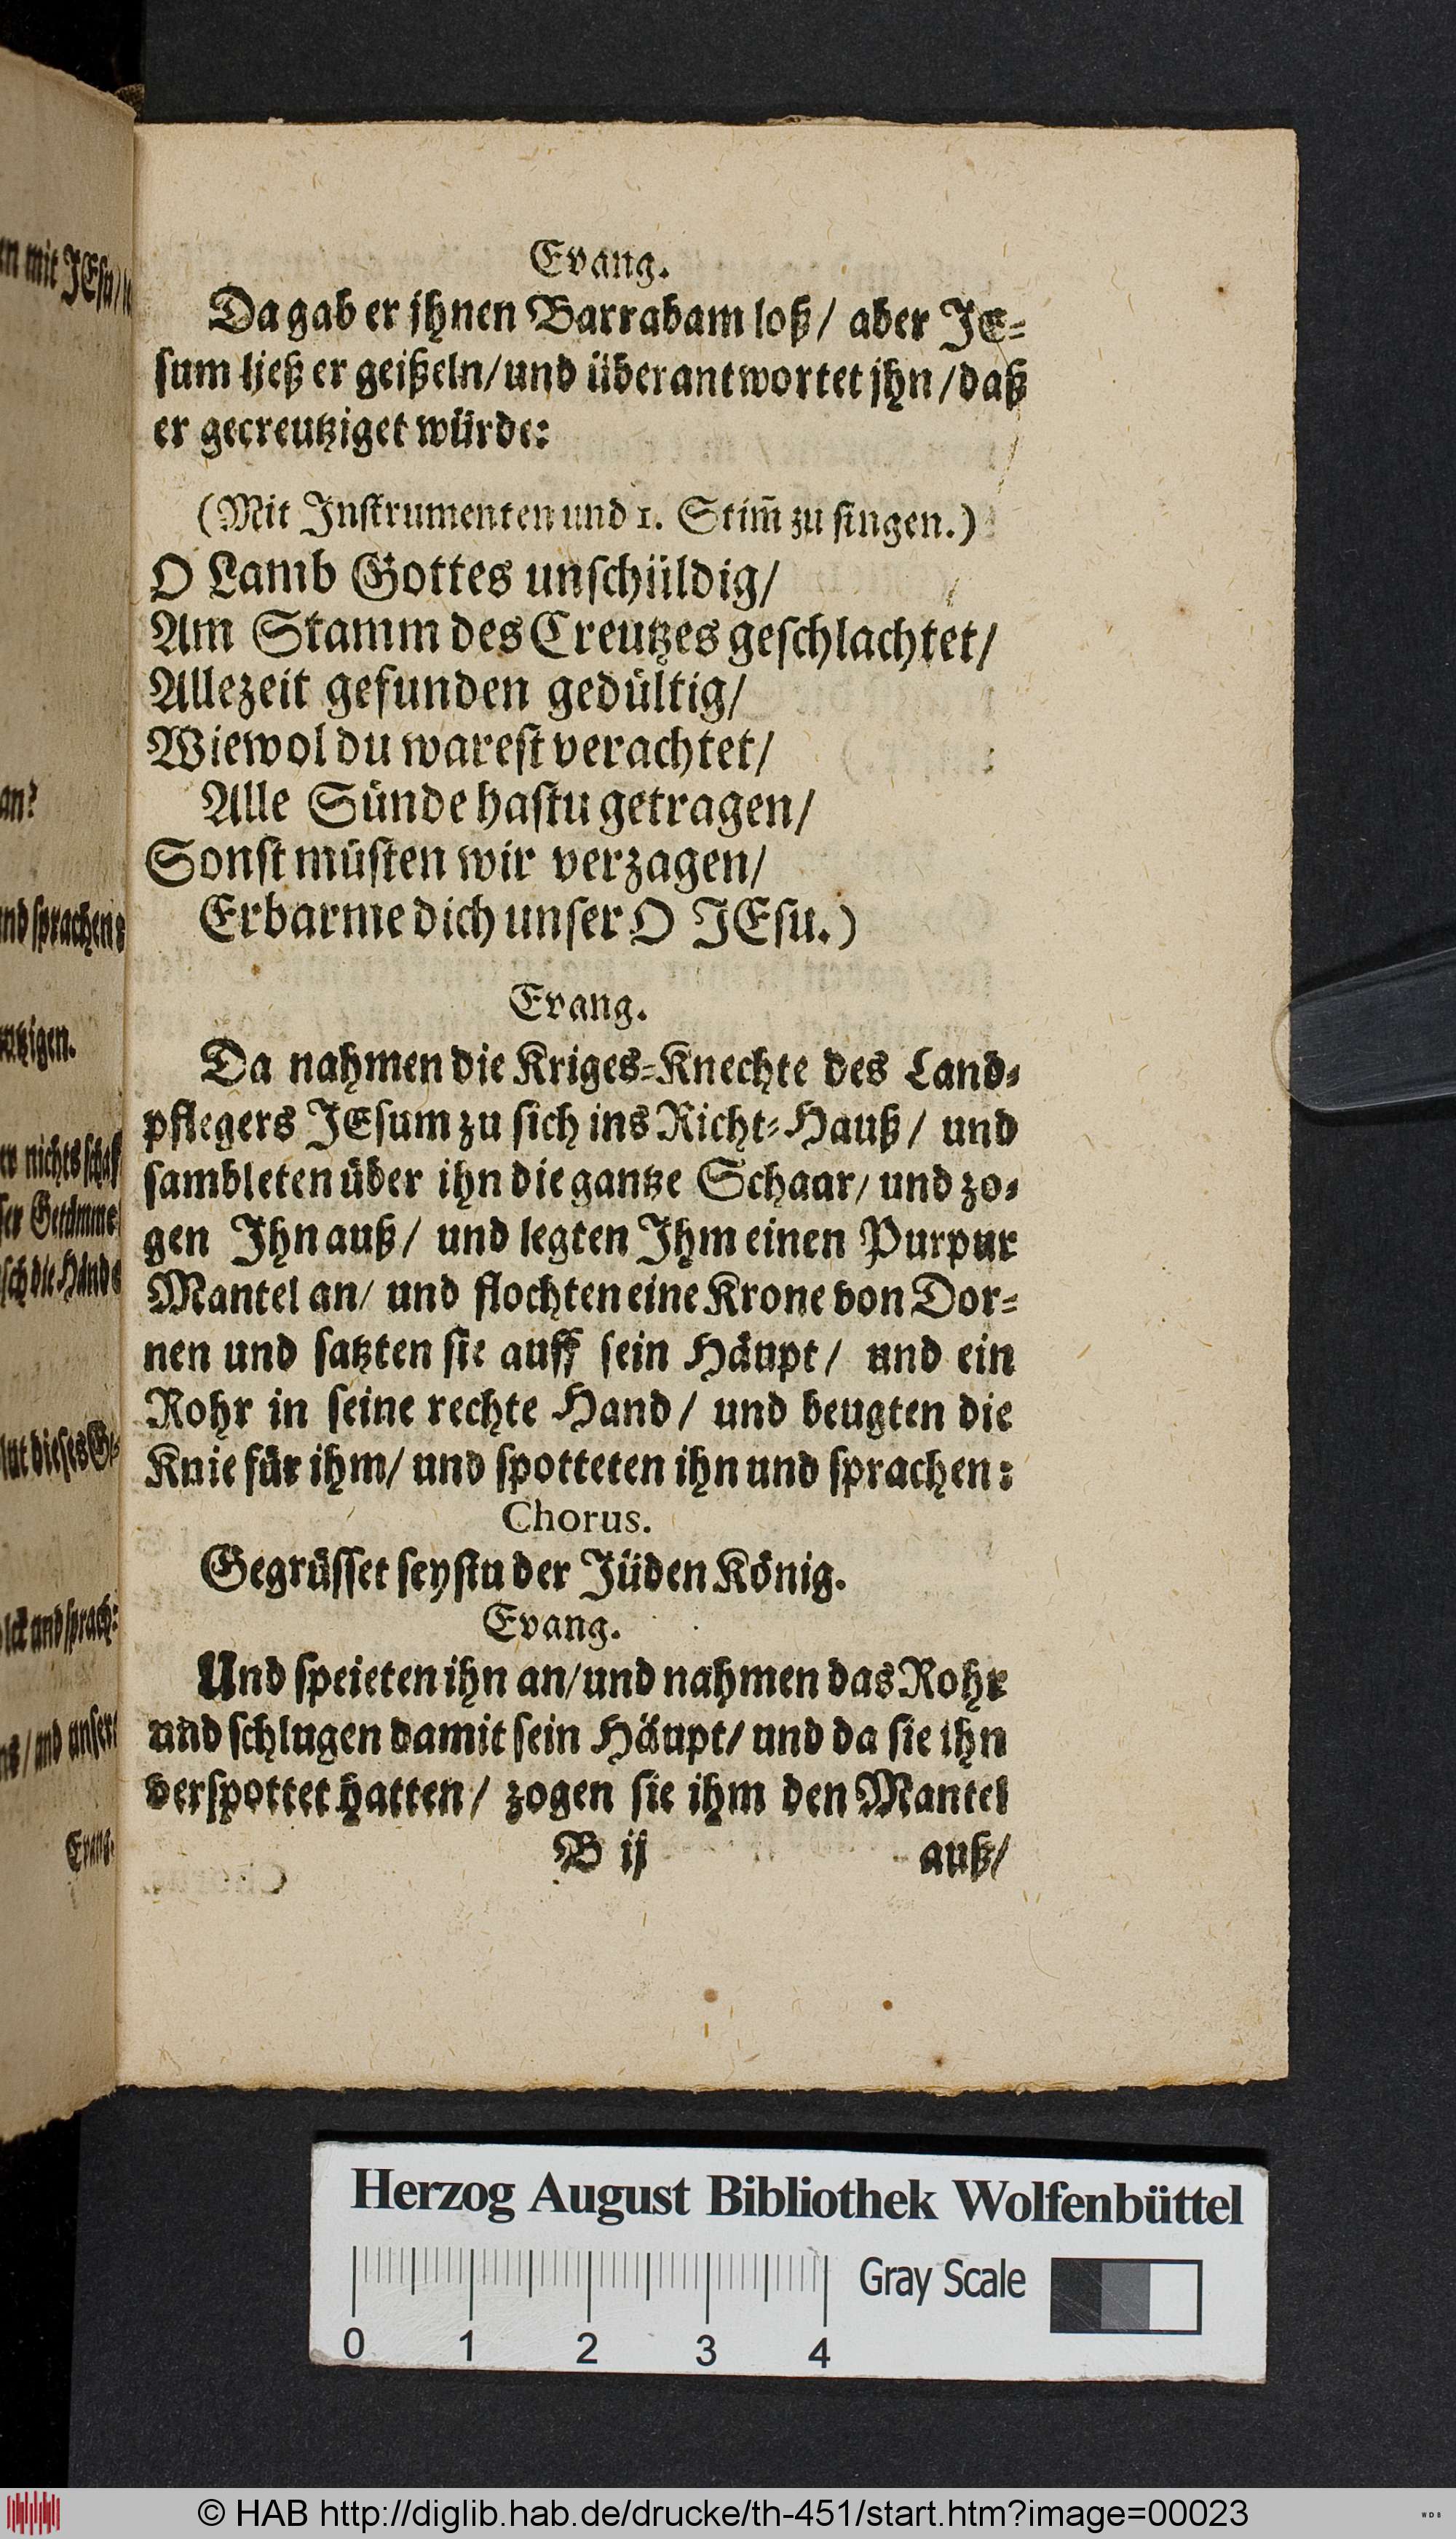 Evang.
Da gab er jhnen Barrabam loß/ aber JE-
sum ließ er geißeln/und überantwortet jhn/daß
er gecreutziget würde:
(Mit Instrumenten und 1. Stim̃ zu singen.)
O Lamb Gottes unschüldig/
Am Stamm des Creutzes geschlachtet/
Allezeit gefunden gedültig/
Wiewol du warest verachtet/
Alle Sünde hastu getragen/
Sonst müsten wir verzagen/
Erbarme dich unser O JEsu.)
Evang.
Da nahmen die Kriges-Knechte des Land-
pflegers JEsum zu sich ins Richt-Hauß/ und
sambleten über ihn die gantze Schaar/ und zo-
gen Ihn auß/ und legten Ihm einen Purpur
Mantel an/ und flochten eine Krone von Dor-
nen und satzten sie auff sein Häupt/ und ein
Rohr in seine rechte Hand/ und beugten die
Knie für ihm/ und spotteten ihn und sprachen:
Chorus.
Gegrüsset seystu der Jüden König.
Evang.
Und speieten ihn an/und nahmen das Rohr
und schlugen damit sein Häupt/ und da sie ihn
verspottet hatten/ zogen sie ihm den Mantel
B ij auß/
mit JEsu/
an?
sprachen:
nichts
die Hände
dieses
und sprach:
/und unsere
Evang.
Herzog August Bibliothek Wolfenbüttel
Gray Scale
0 1 2 3 4
© HAB http://diglib.hab.de/drucke/th-451/start.htm?image=00023
WDB